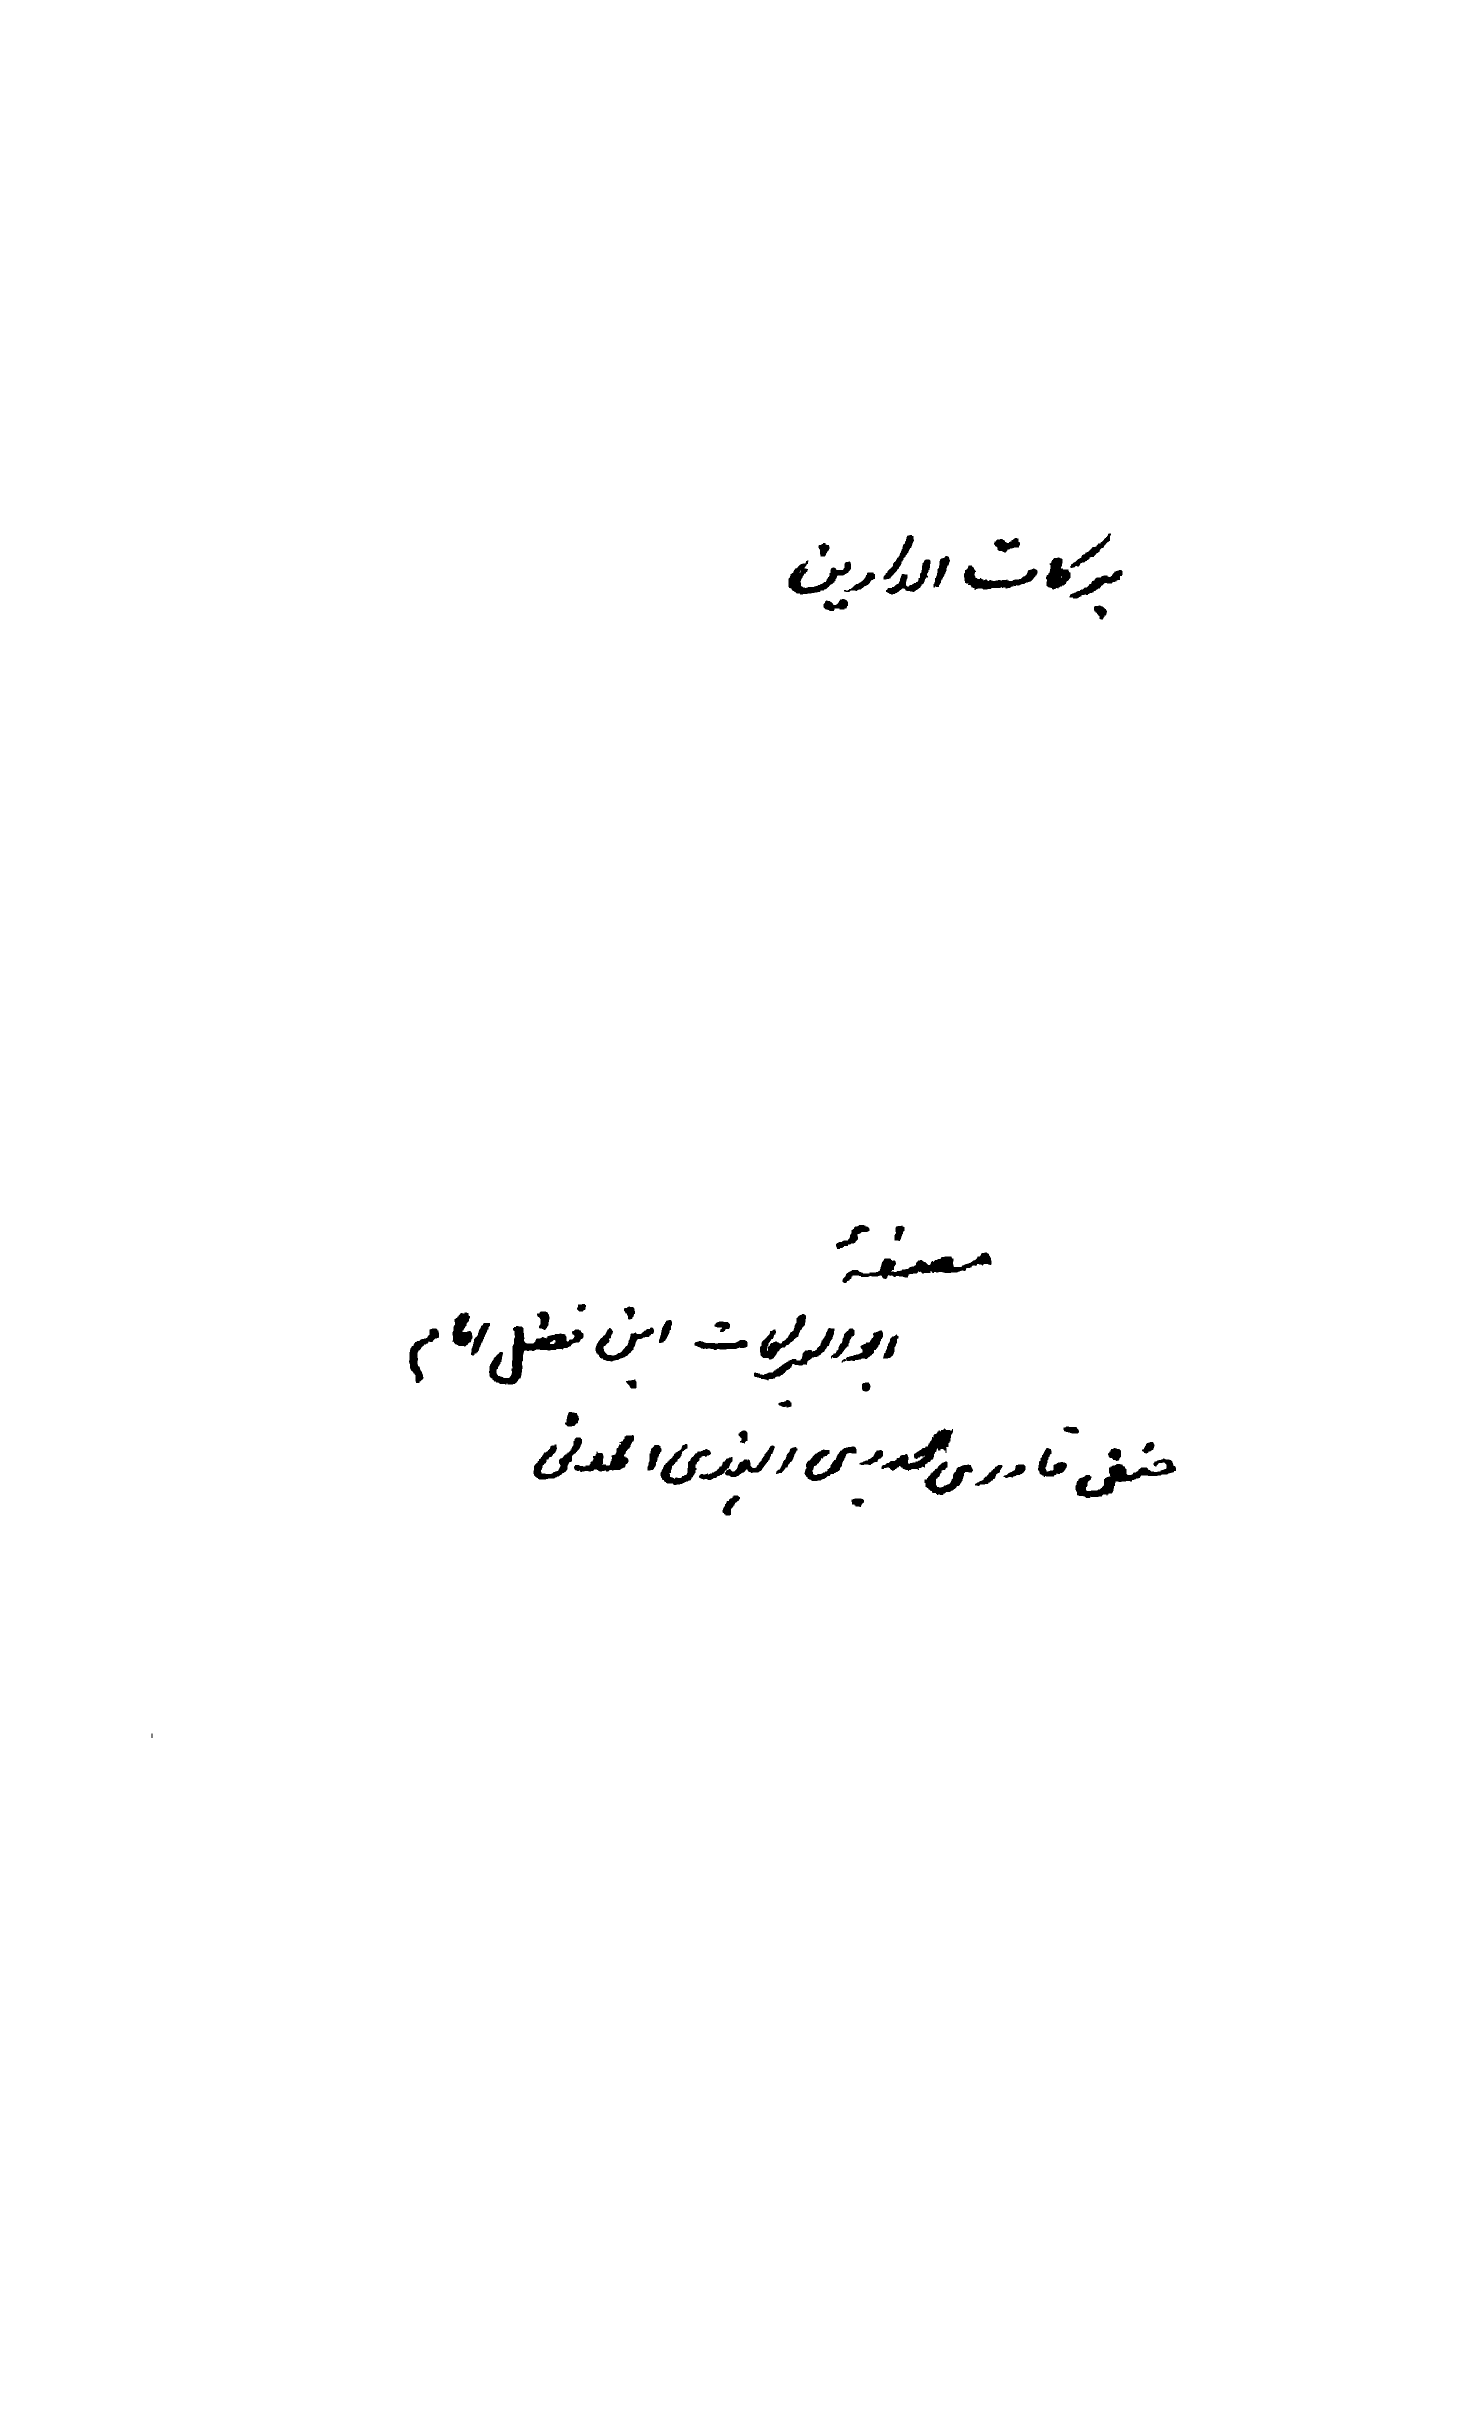 برکات الدارین
مصنفۂ
ابو البرکات ابن فضل امام
حنفی قادری المدنی